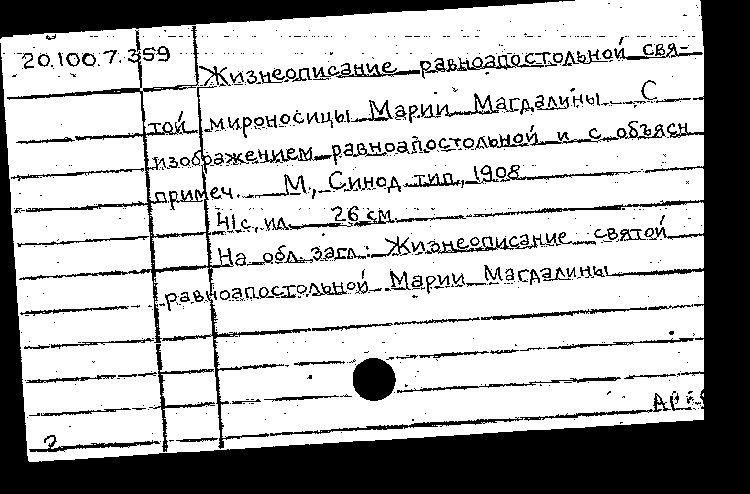 20.100.7.359
Жизнеописание равноапостольной свя-
той мироносицы Марии Магдалины. С
изображением равноапостольной и с объясн
примеч. М., Синод. тип., 1908
41 с., ил. 26 см.
На обл. загл.: Жизнеописание святой
равноапостольной Марии Магдалины
2